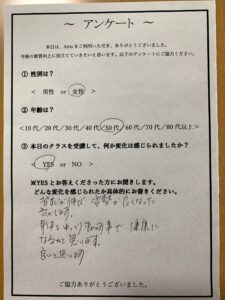 ～ アンケート ～
本日は、Airis をご利用いただき、ありがとうございました。
今後の運営向上に役立てていきたいと思います。以下のアンケートにご協力ください。
① 性別は？
< 男性 or 女性 >
② 年齢は？
<10代／20代／30代／40代／50代／60代／70代／80代以上>
③ 本日のクラスを受講して、何か変化は感じられましたか？
< YES or NO >
※YESとお答えくださった方にお聞きします。
どんな変化を感じられたか具体的にお書きください。
背すじが伸び 姿勢が良くなった
身体をゆっくり動かす事で 健康に
なると思います。
良いと思います
ご協力ありがとうございました。